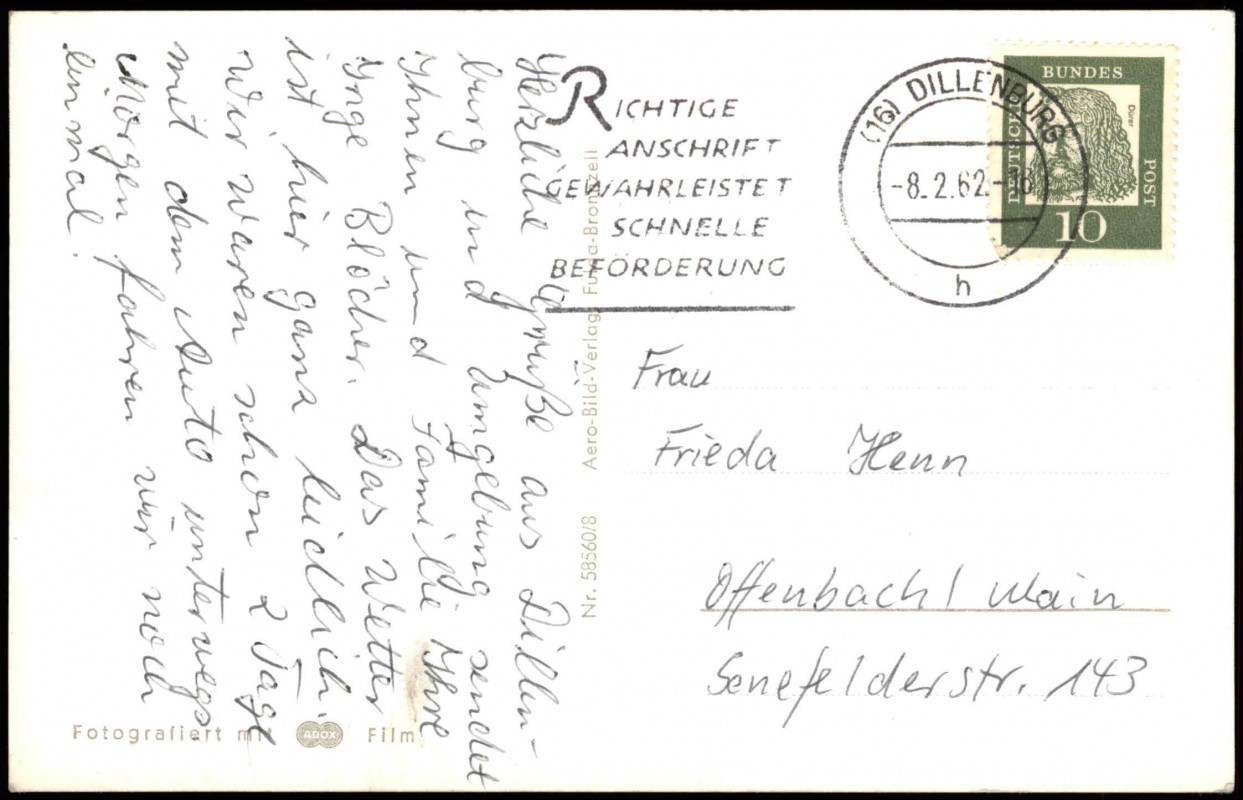 Herzliche Grüße aus Dillen-
burg und Umgebung sendet
Ihnen und Familie Ihre
Inge Blöcher. Das Wetter
ist hier ganz leidlich.
Wir waren schon 2 Tage
mit dem Auto unterwegs
Morgen fahren wir noch
einmal!
RICHTIGE
ANSCHRIFT
GEWÄHRLEISTET
SCHNELLE
BEFÖRDERUNG
(16) DILLENBURG
-8.2.62.-18
h
DEUTSCHE
BUNDES
POST
Dürer
10
Frau
Frieda Henn
Offenbach/Main
Senefelderstr. 143
Nr. 58560/8 Aero-Bild-Verlag, Fulda-Bronnzell
Fotografiert mit ADOX Film